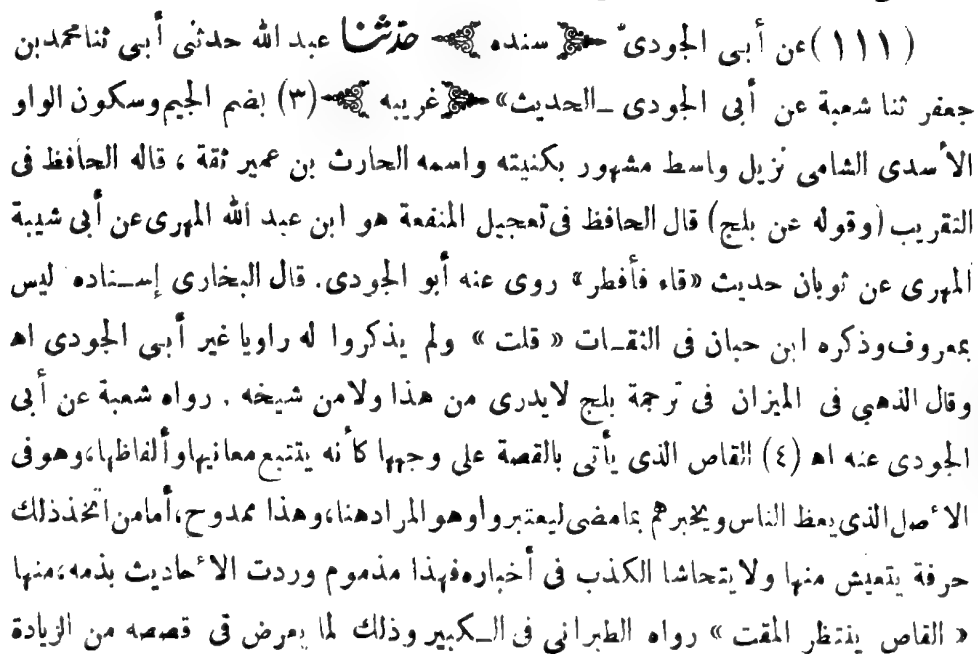 (١١١) عن أبى الجودى سنده حدثنا عبد الله حدثنى أبى ثنا محمد بن
جعفر ثنا شعبة عن أبى الجودى ـ الحديث» غريبه (٣) بضم الجيم وسكون الواو
الأسدى الشامى نزيل واسط مشهور بكنيته واسمه الحارث بن عمير ثقة ، قاله الحافظ فى
التقريب (وقوله عن بلج) قال الحافظ فى تعجيل المنفعة هو ابن عبد الله المهرى عن أبى شيبة
المهرى عن ثوبان حديث «قاء فأفطر» روى عنه أبو الجودى. قال البخارى إسـناده ليس
بمعروف وذكره ابن حبان فى الثقـات « قلت » ولم يذكروا له راويا غير أبـى الجودى اه
وقال الذهبى فى الميزان فى ترجمة بلج لايدرى من هذا ولا من شيخه . رواه شعبة عن أبى
الجودى عنه اه (٤) القاص الذى يأتى بالقصة على وجهها كأنه يتتبع معانيها وألفاظها، وهو فى
الأصل الذى يعظ الناس ويخبرهم بما مضى ليعتبروا وهو المراد هنا، وهذا ممدوح، أما من اتخذ ذلك
حرفة يتعيش منها ولا يتحاشا الكذب فى أخباره فهذا مذموم وردت الأحاديث بذمه، منها
« القاص ينتظر المقت » رواه الطبرانى فى الـكبير وذلك لما يعرض فى قصصه من الزيادة